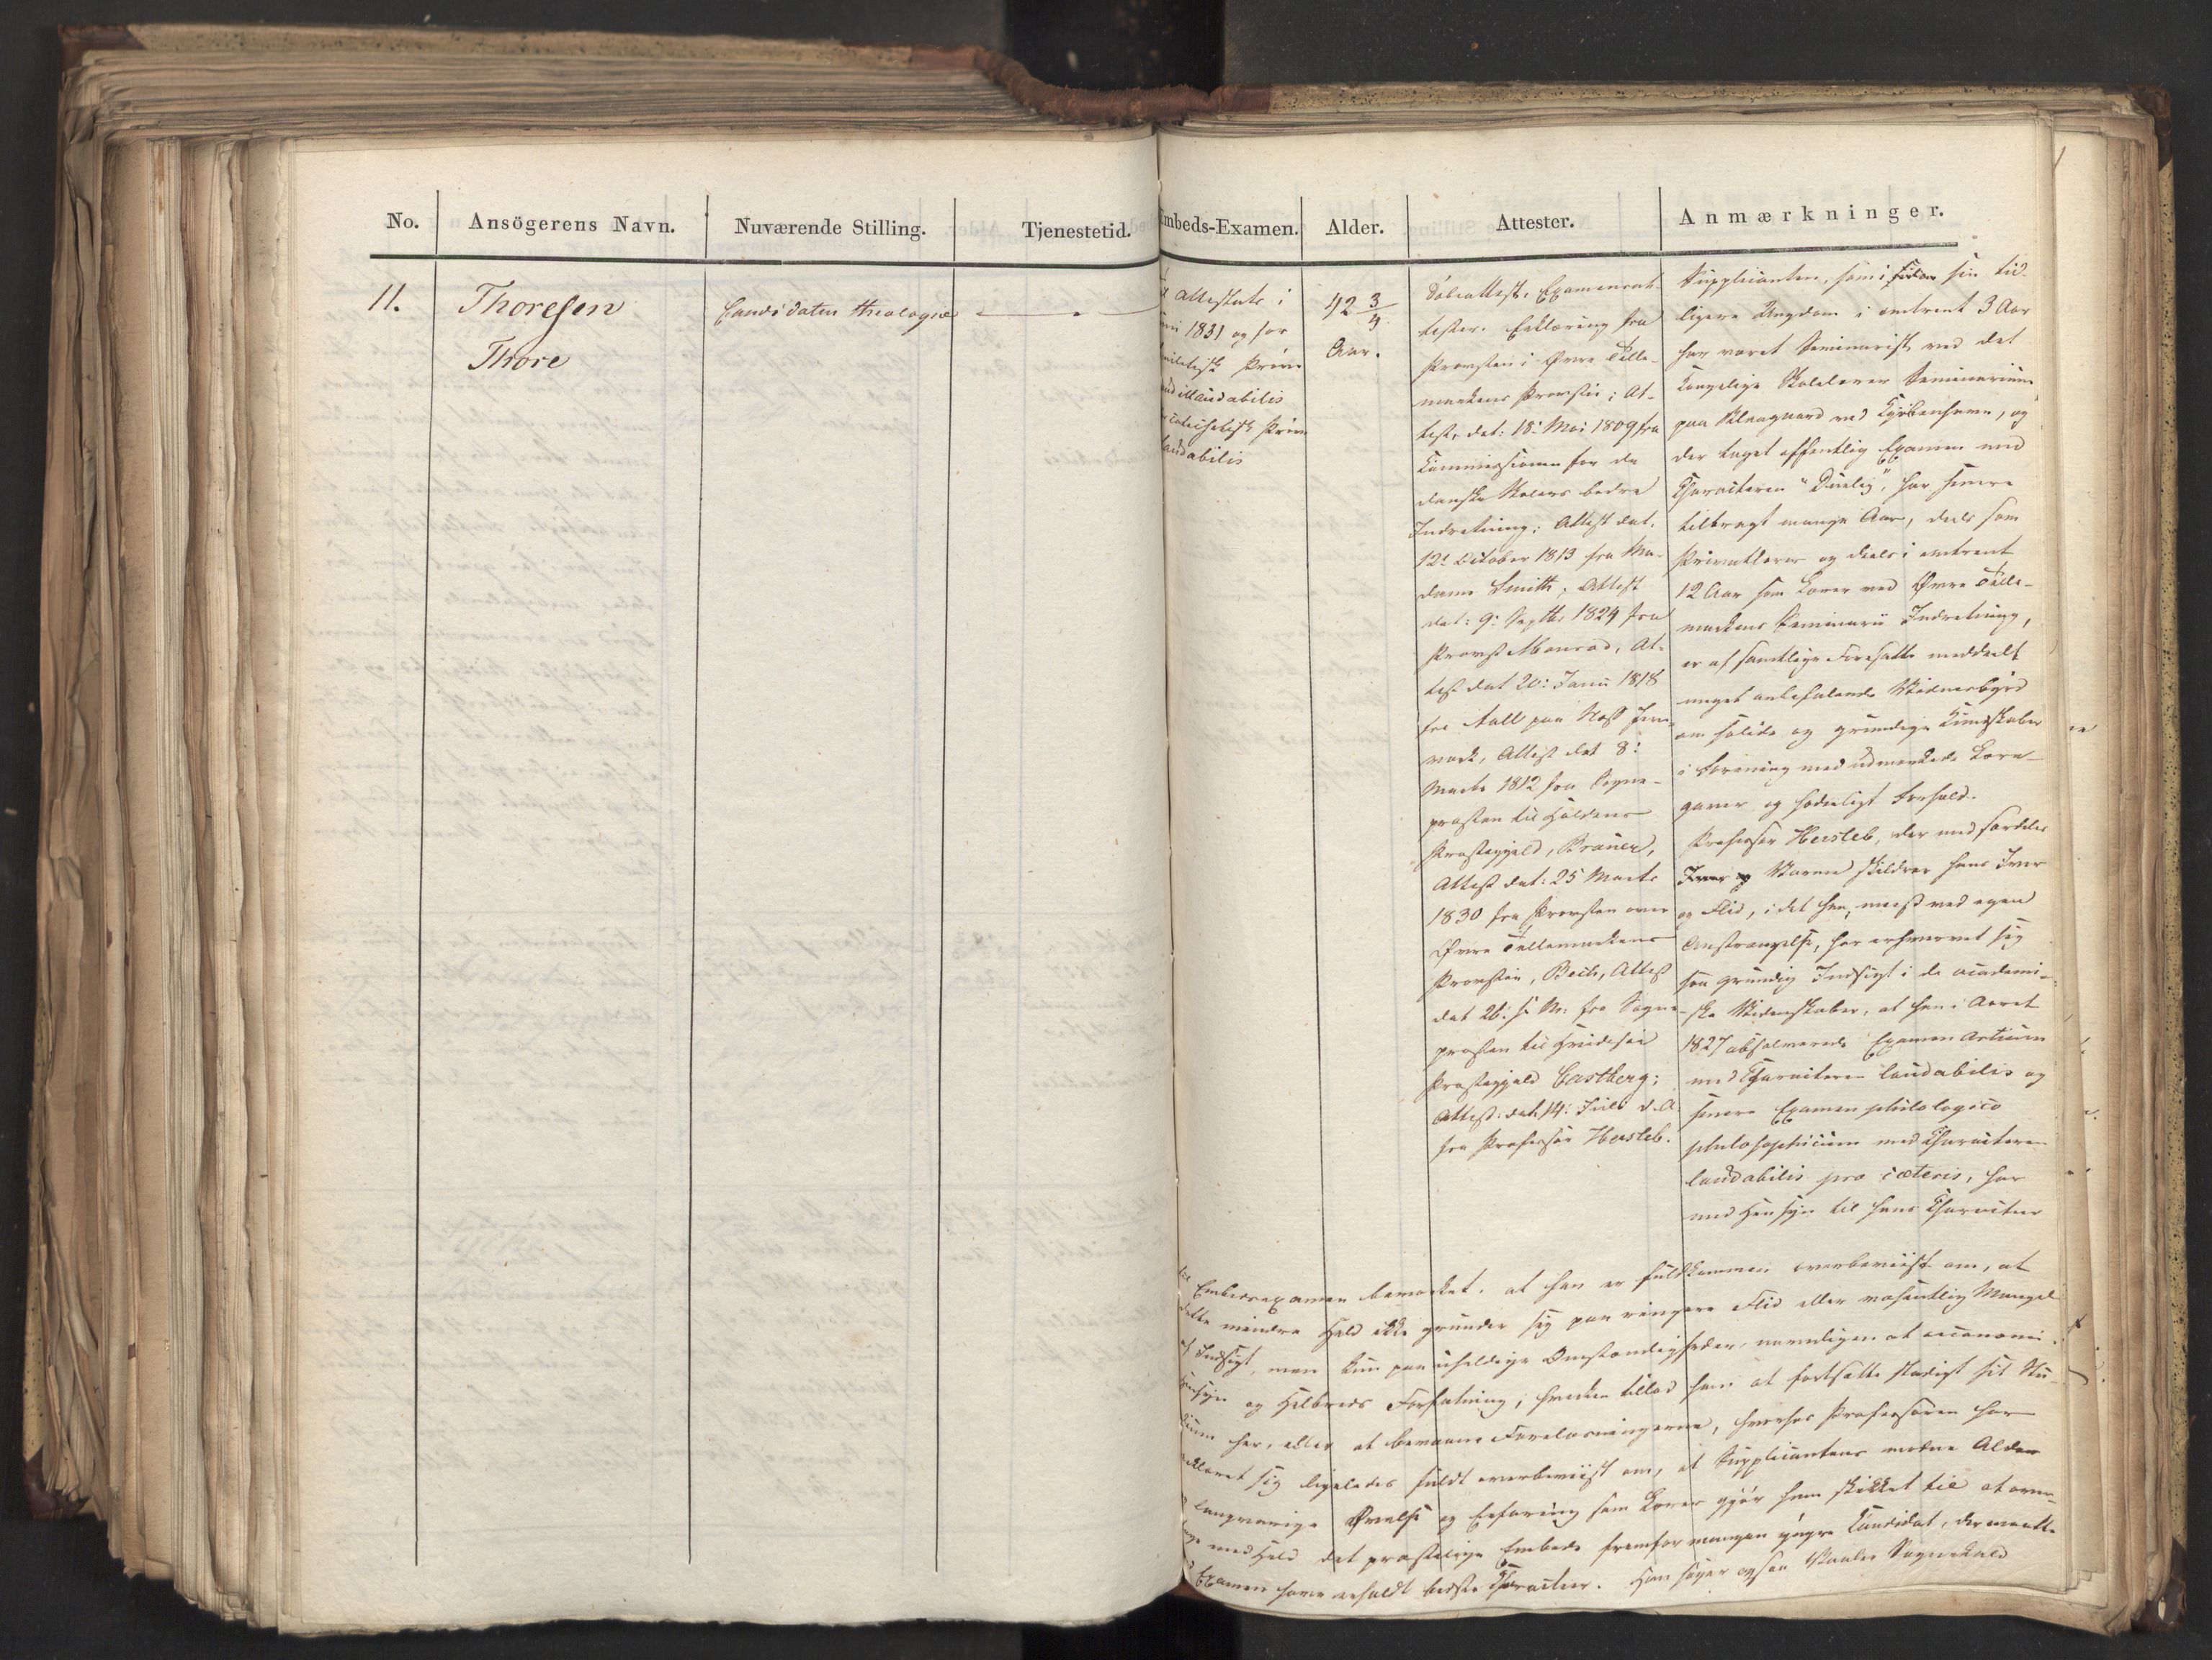 No.
Ansögerens Navn.
Nuværende Stilling.
Tjenestetid.
Embeds-Examen.
Alder.
Attester.
Anmærkninger.
11.
Thoresen
Thore
Candidaten theologiæ
attestats i
1831 og for
Prøve
illaudabilis
catechetisk Prøve
laudabilis
42 3/4
Aar.
Døbeattest. Examensat-
tester. Erklæring fra
Provsten i Øvre Telle-
markens Provstie; At-
test, dat: 18: Mai 1809 fra
Commissionen for de
danske Skolers bedre
Indretning; Attest dat.
12: October 1813 fra Ma-
dame Smith; Attest
dat: 9: Septbr 1824 fra
Provst Monrad; At-
test dat 20: Januar 1818
fra Aall paa Næs Jern-
værk, Attest dat 8:
Marts 1812 fra Sogne-
præsten til Holdens
Præstegjeld,
Attest dat: 25 Marts
1830 fra Provsten over
Øvre Tellemarkens
Provstie, Bech, Attest
dat 26: fra Sogne-
præsten til Hvidesøe
Præstegjeld Castberg;
Attest: dat. 14: Juli d. A.
fra Professor Hersleb.
Supplicanten, som i sin tid-
ligere Ungdom i omtrent 3 Aar
har været Seminarist ved det
Kongelige Skolelærer Seminarium
paa Blaagaard ved Kjøbenhavn, og
der taget offentlig Examen med
Charakteren "Duelig", har senere
tilbragt mange Aar, deels som
Privatlærer og deels i omtrent
12 Aar som Lærer ved Øvre Telle-
markens Seminarii Indretning,
er af samtlige Foresatte meddeelt
meget anbefalende Vidnesbyrd
om solide og grundige Kundskaber
i Forening med udmærkede Lære-
gaver og sædeligt Forhold.
Professor Hersleb, der med særdeles
Varme skildrer hans Iver
og Flid, idet han, meest ved egen
Anstrængelse, har erhvervet sig
saa grundig Indsigt i de academi-
ske Videnskaber, at han i Aaret
1827 absolverede Examen Artium
med Charakteren laudabilis og
senere Examen philologico
philosophicum med Charakteren
laudabilis præ cæteris, har
med Hensyn til hans Charakteer
til Embedsexamen bemærket, at han er fuldkommen overbeviist om, at
dette mindre Held ikke grunder sig paa ringere Flid eller væsentlig Mangel
af Indsigt, men kun paa uheldige Omstændigheder, navnligen at oeconomi-
Hensyn og Helbreds Forfatning, hverken tillod ham at fortsætte stadigt sit Stu-
dium her, eller at benytte Forelæsningerne, hvorhos Professoren har
erklæret sig ligeledes fuldt overbeviist om, at Supplicantens modne Alder
og langvarige Øvelse og Erfaring som Lærer gjør ham skikket til at over-
tage med Held det præstelige Embede fremfor mangen yngre Candidat, der maatte
Examen have erholdt bedre Charakteer. Han søger ogsaa Vaaler Sognekald